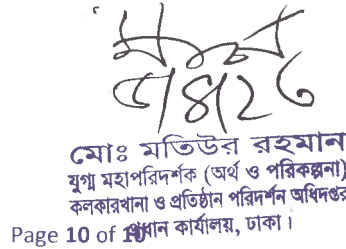 মোঃ মতিউর রহমান
যুগ্ম মহাপরিদর্শক (অর্থ ও পরিকল্পনা)
কলকারখানা ও প্রতিষ্ঠান পরিদর্শন অধিদপ্তর
প্রধান কার্যালয়, ঢাকা।
Page 10 of 10